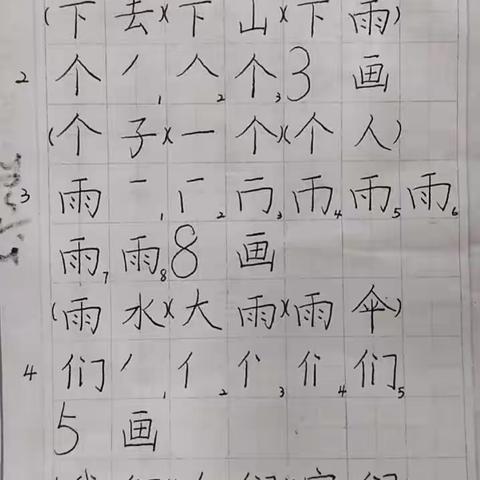 (下去)(下山)(下雨)
2 个 丿1 人2 个3 3画
(个子)(一个)(个人)
3 雨 一1 丆2 冂3 帀4 雨5 雨6
雨7 雨8 8画
(雨水)(大雨)(雨伞)
4 们 丿1 亻2 亻3 们4 们5
5画